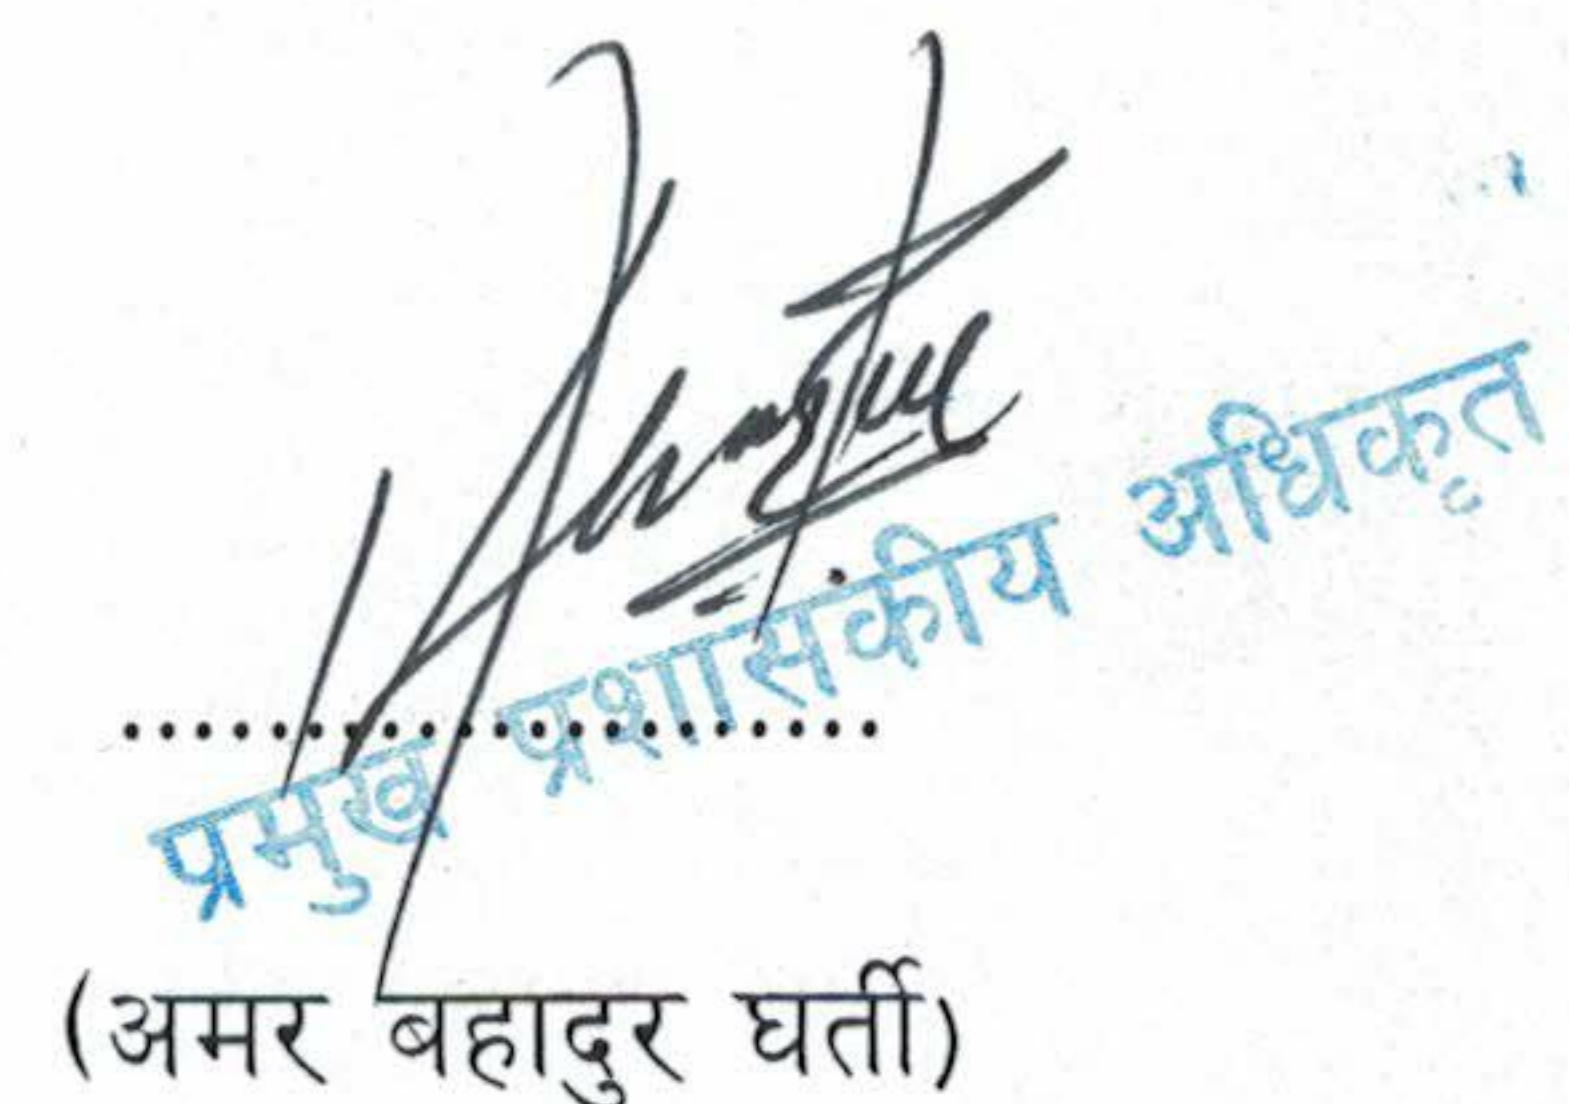 ........................
प्रमुख प्रशासकीय अधिकृत
(अमर बहादुर घर्ती)